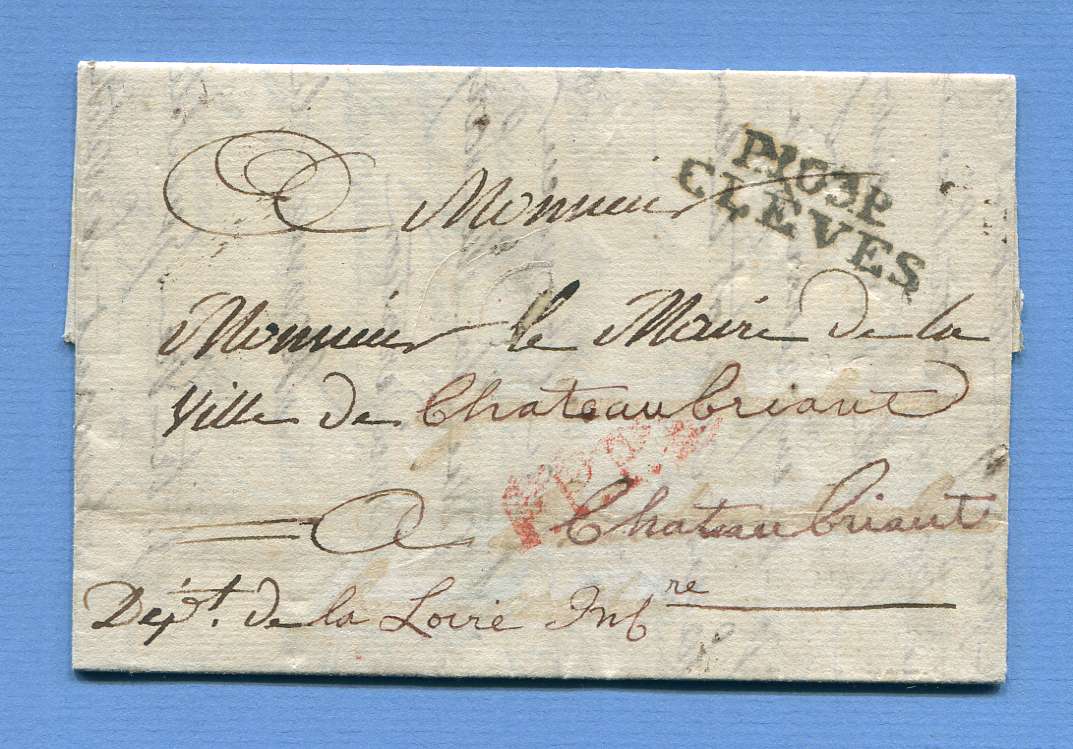 Monsieur
P103P
CLEVES
Monsieur le Maire de la
Ville de Chateaubriant
A Chateaubriant
Dépt. de la Loire Infre